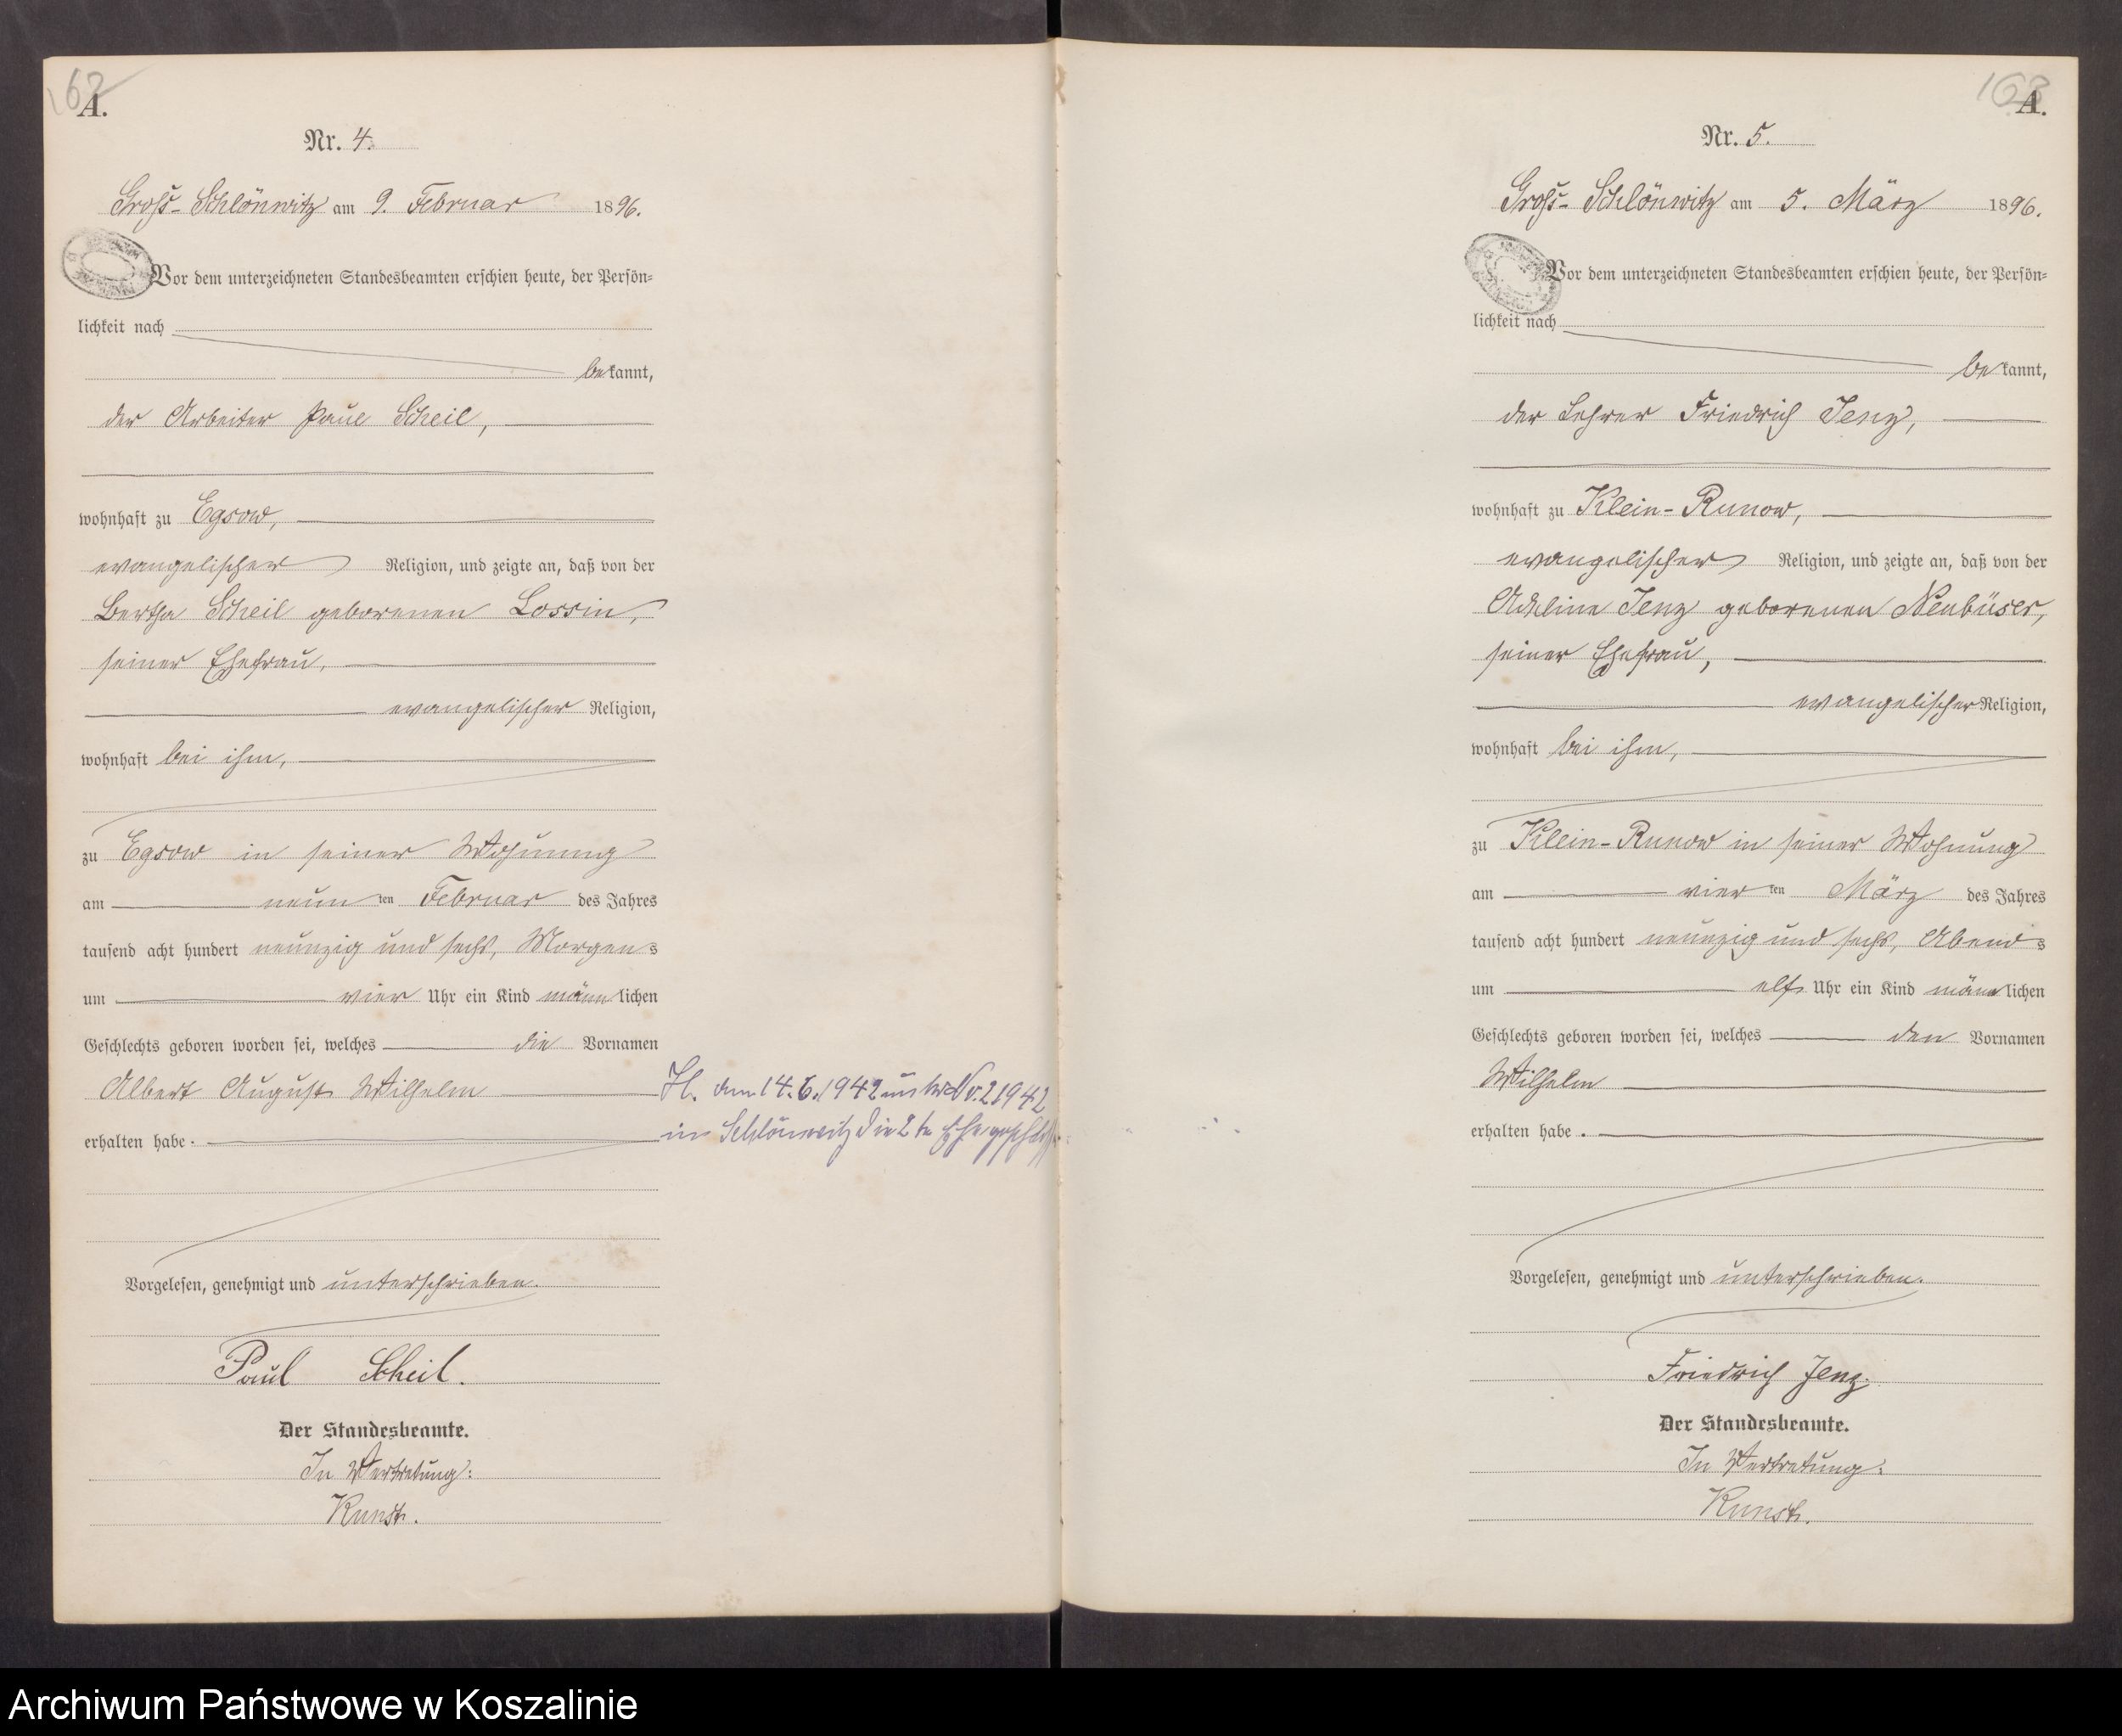 162
A.
Nr. 4.
Gross-Schlönwitz am 9. Februar 1896.
Vor dem unterzeichneten Standesbeamten erschien heute, der Persön=
lichkeit nach
bekannt,
der Arbeiter Paul Scheil,
wohnhaft zu Egsow,
evangelischer Religion, und zeigte an, daß von der
Bertha Scheil geborenen Lossin,
seiner Ehefrau,
evangelischer Religion,
wohnhaft bei ihm,
zu Egsow in seiner Wohnung
am neunten Februar des Jahres
tausend acht hundert neunzig und sechs, Morgens
um vier Uhr ein Kind männlichen
Geschlechts geboren worden sei, welches die Vornamen
Albert August Wilhelm
erhalten habe.
Vorgelesen, genehmigt und unterschrieben.
Paul Scheil.
Der Standesbeamte.
In Vertretung:
Kunst.
Hl. am 14.6.1942 unter Nr. 2 1942
in Schlönwitz die 2te Ehe geschlossen
163
A.
Nr. 5.
Gross-Schlönwitz am 5. März 1896.
Vor dem unterzeichneten Standesbeamten erschien heute, der Persön=
lichkeit nach
bekannt,
der Lehrer Friedrich Jenz,
wohnhaft zu Klein-Runow,
evangelischer Religion, und zeigte an, daß von der
Adeline Jenz geborenen Neubüser,
seiner Ehefrau,
evangelischer Religion,
wohnhaft bei ihm,
zu Klein-Runow in seiner Wohnung
am vierten März des Jahres
tausend acht hundert neunzig und sechs, Abends
um elf Uhr ein Kind männlichen
Geschlechts geboren worden sei, welches den Vornamen
Wilhelm
erhalten habe.
Vorgelesen, genehmigt und unterschrieben.
Friedrich Jenz.
Der Standesbeamte.
In Vertretung:
Kunst.
Archiwum Państwowe w Koszalinie